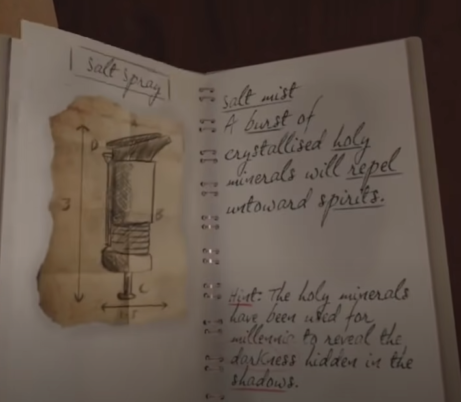 Salt Spray
D
3
B
C
1.5
Salt mist
A burst of
crystallised holy
minerals will repel
untoward spirits.
Hint: The holy minerals
have been used for
millennia to reveal the
darkness hidden in the
shadows.